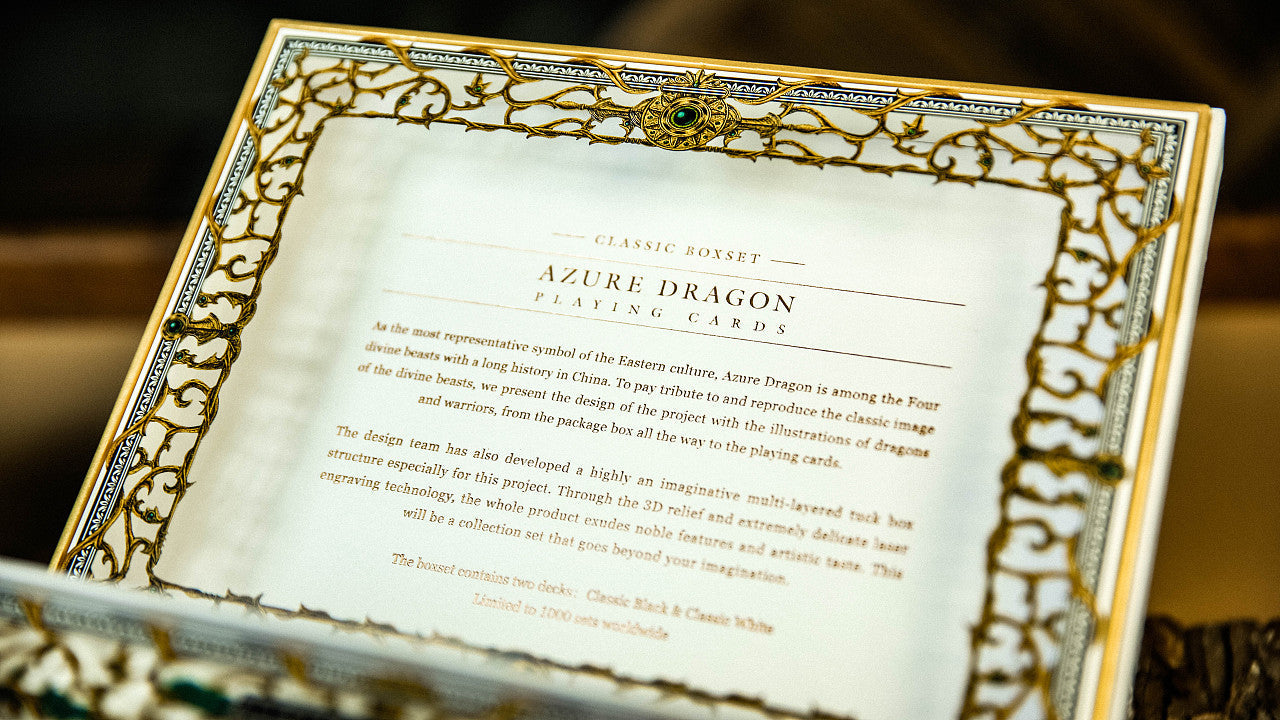 CLASSIC BOXSET
AZURE DRAGON
PLAYING CARDS
As the most representative symbol of the Eastern culture, Azure Dragon is among the Four
divine beasts with a long history in China. To pay tribute to and reproduce the classic image
of the divine beasts, we present the design of the project with the illustrations of dragons
and warriors, from the package box all the way to the playing cards.
The design team has also developed a highly an imaginative multi-layered tuck box
structure especially for this project. Through the 3D relief and extremely delicate laser
engraving technology, the whole product exudes noble features and artistic taste. This
will be a collection set that goes beyond your imagination.
The boxset contains two decks: Classic Black & Classic White
Limited to 1000 sets worldwide